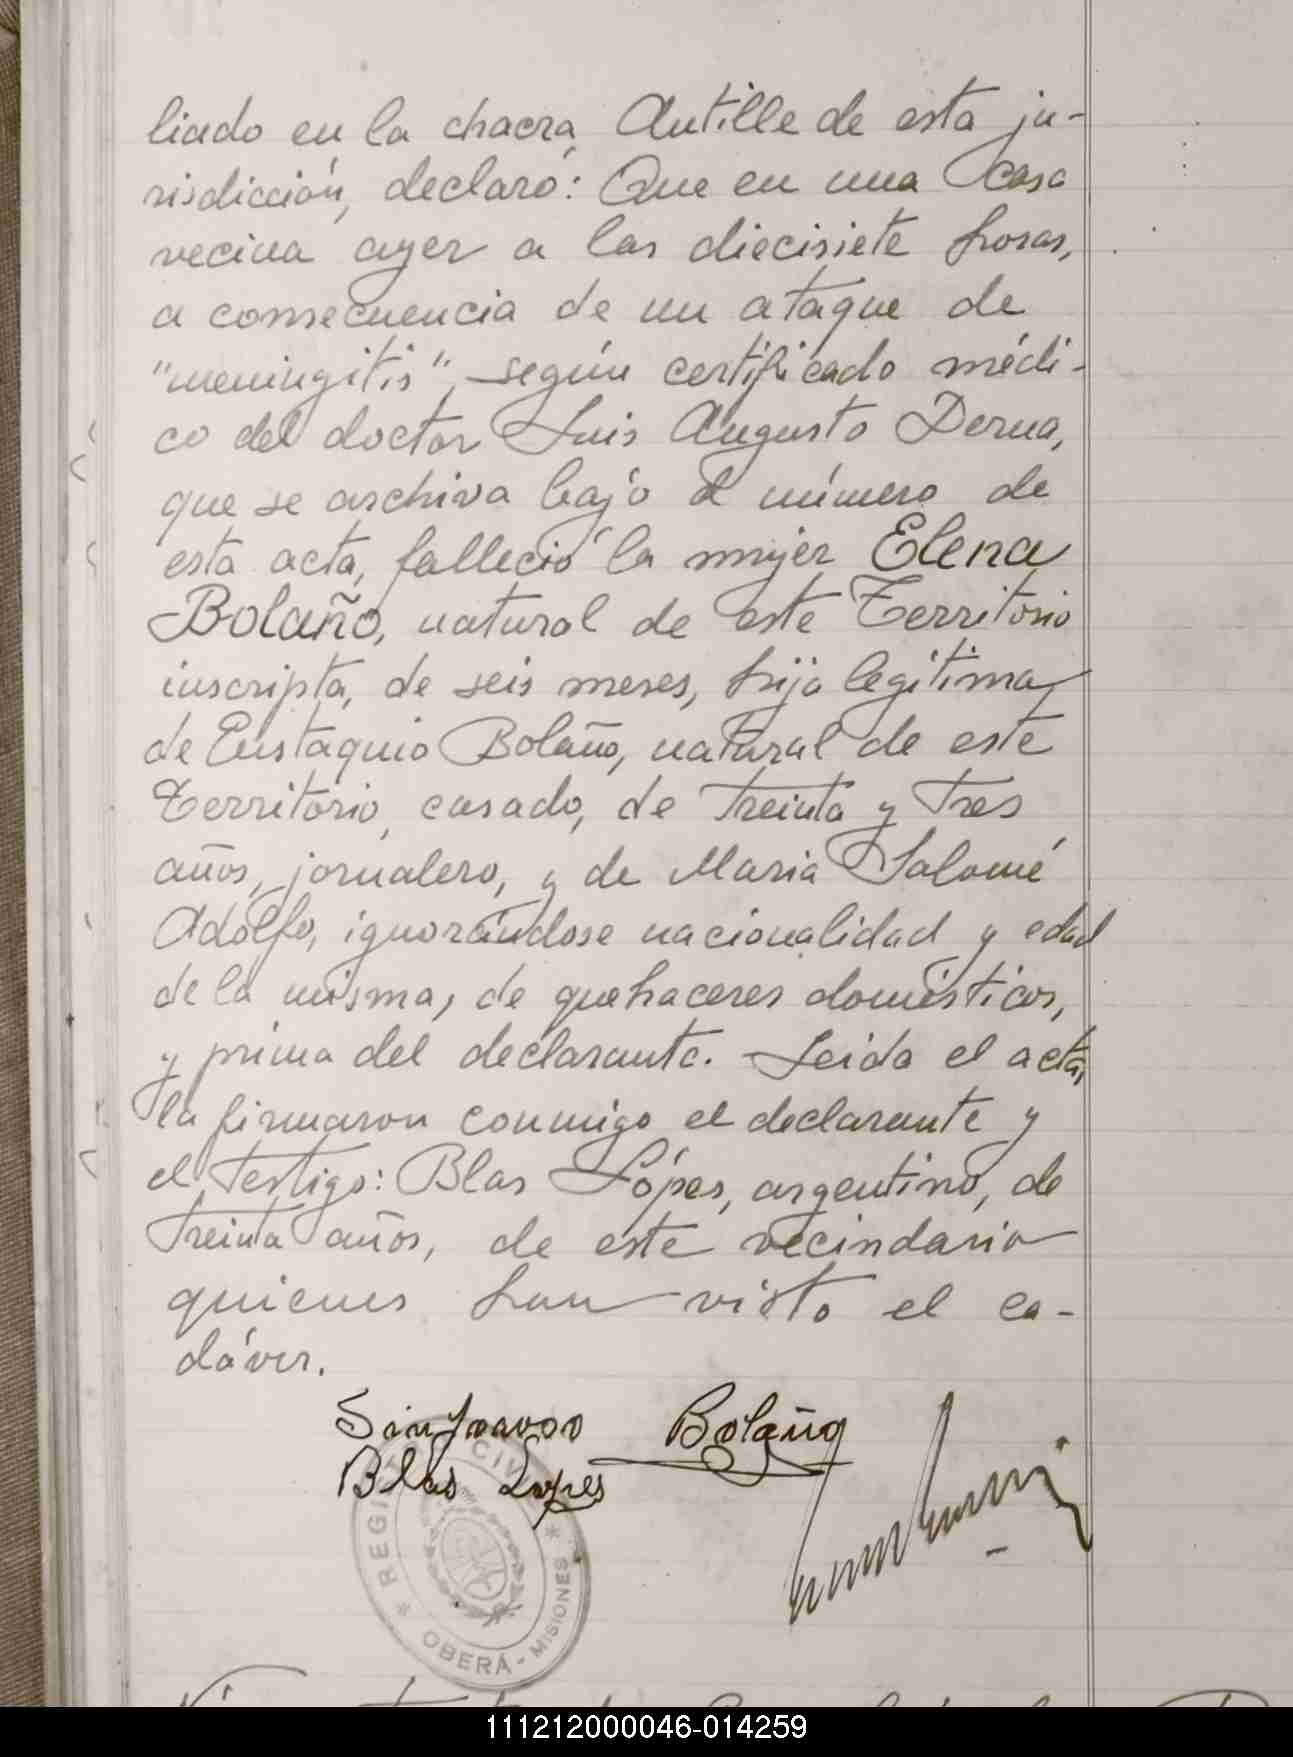 liado en la chacra Autille de esta ju-
risdicción, declaró: Que en una casa
vecina ayer a las diecisiete horas,
a consecuencia de un ataque de
"meningitis", según certificado médi-
co del doctor Luis Augusto Derna,
que se archiva bajo el número de
esta acta, falleció la mujer Elena
Bolaño, natural de este Territorio
inscripta, de seis meses, hija legítima
de Eustaquio Bolaño, natural de este
Territorio, casado, de treinta y tres
años, jornalero, y de Maria Salomé
Adolfo, ignorándose nacionalidad y edad
de la misma, de quehaceres domésticos,
y prima del declarante. Leida el acta,
la firmaron conmigo el declarante y
el testigo: Blas Lópes, argentino, de
treinta años, de este vecindario
quienes han visto el ca-
dáver.
Bolaño
Blas Lopes
REGI CIVI
OBERÁ - MISIONES
111212000046-014259